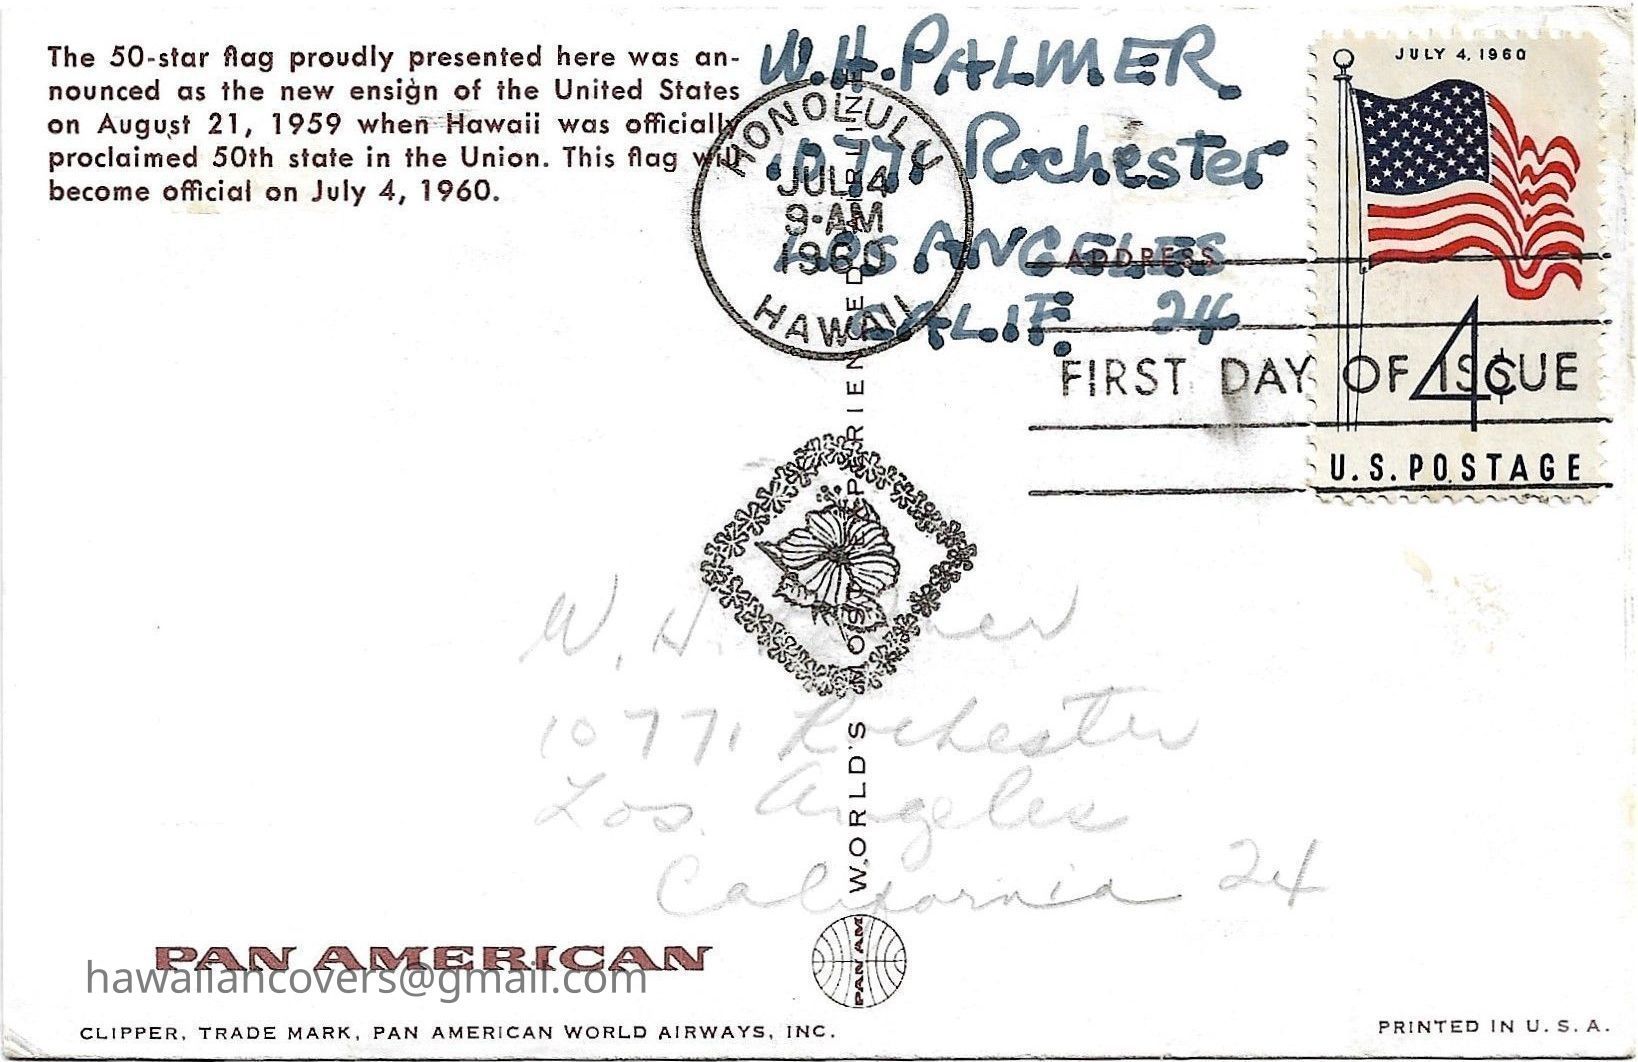 The 50-star flag proudly presented here was an-
nounced as the new ensign of the United States
on August 21, 1959 when Hawaii was officially
proclaimed 50th state in the Union. This flag will
become official on July 4, 1960.
W. H. PALMER
10771 Rochester
LOS ANGELES
CALIF. 24
ADDRESS
HONOLULU
JUL 4
9-AM
1960
HAWAII
FIRST DAY OF ISSUE
JULY 4, 1960
4¢
U.S. POSTAGE
WORLD'S MOST EXPERIENCED AIRLINE
W. H.
10771 Rochester
Los Angeles
California 24
PAN AMERICAN
hawaiiancovers@gmail.com
PAN AM
CLIPPER, TRADE MARK, PAN AMERICAN WORLD AIRWAYS, INC.
PRINTED IN U. S. A.